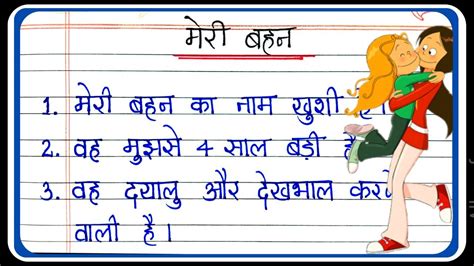 मेरी बहन
1. मेरी बहन का नाम खुशी है।
2. वह मुझसे 4 साल बड़ी है
3. वह दयालु और देखभाल करने
वाली है।